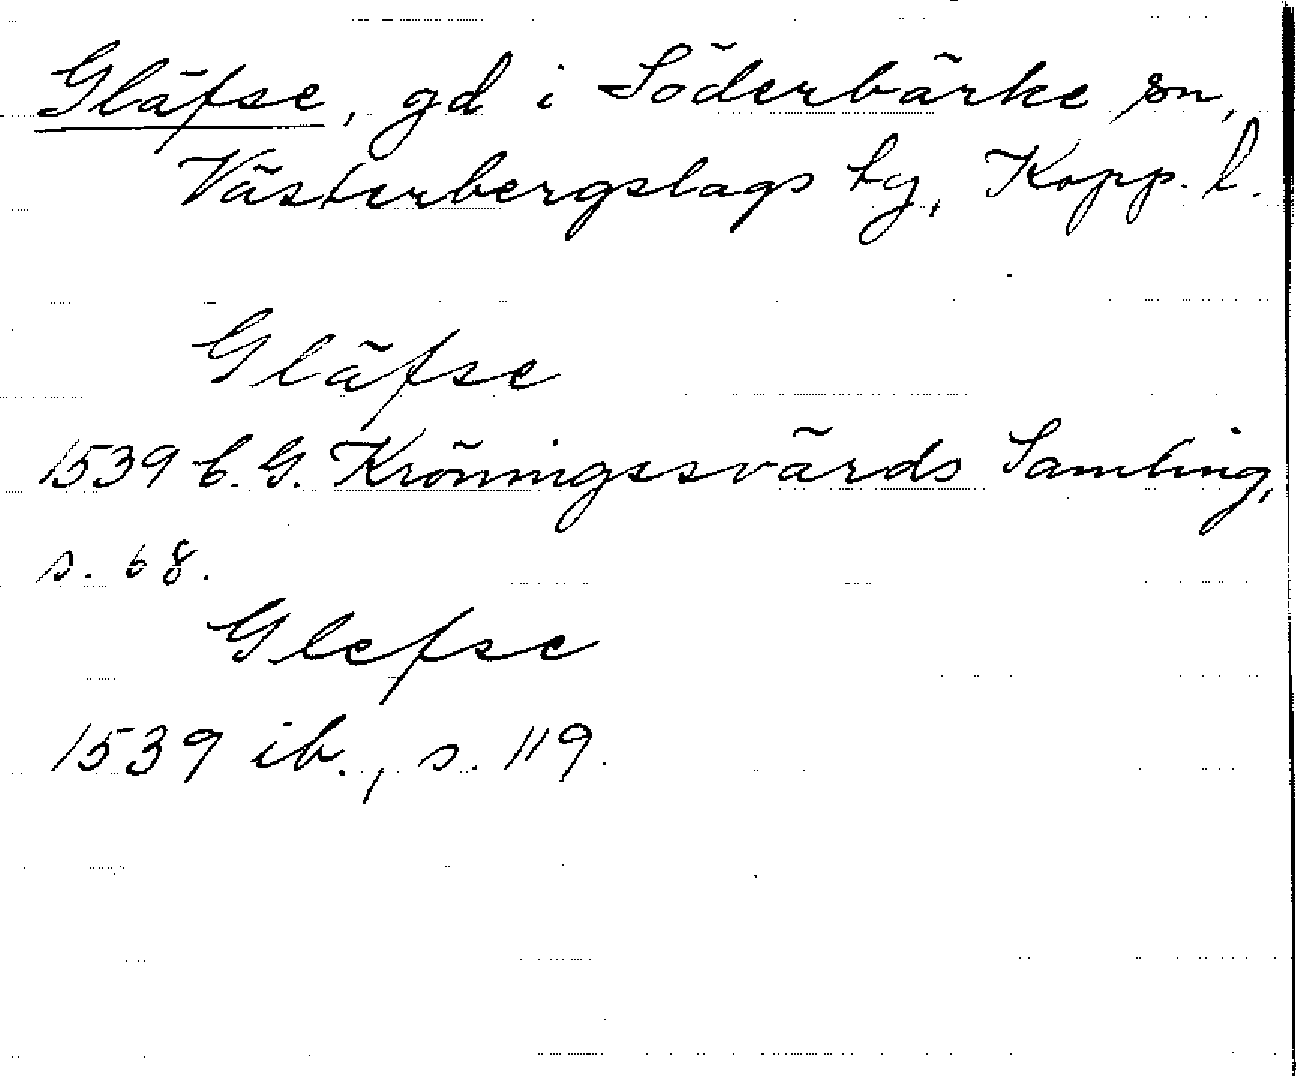 Gläfse, gd i Söderbärke sn,
Västerbergslags tg, Kopp. l.
Gläfse
1539 C. G. Kröningssvärds Samling,
s. 68.
Glefse
1539 ib., s. 119.